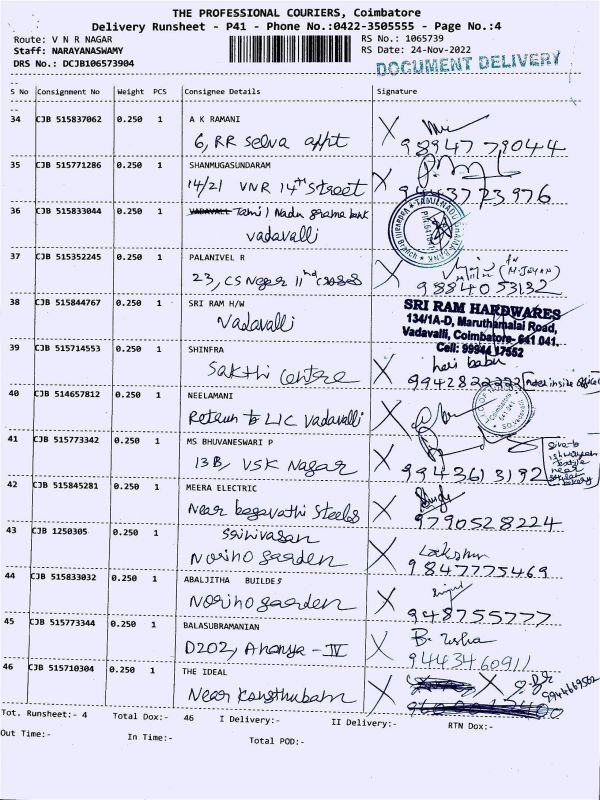 THE PROFESSIONAL COURIERS, Coimbatore
Delivery Runsheet - P41 - Phone No.:0422-3505555 - Page No.:4
Route: V N R NAGAR
RS No.: 1065739
Staff: NARAYANASWAMY
RS Date: 24-Nov-2022
DRS No.: DCJB106573904
DOCUMENT DELIVERY
S No Consignment No Weight PCS Consignee Details Signature
34 CJB 515837062 0.250 1 A K RAMANI
6, RR Selva appt 98947 79044
35 CJB 515771286 0.250 1 SHANMUGASUNDARAM
14/21 VNR 14th Street 9443773976
36 CJB 515833044 0.250 1 Tamil Nadu grama bank
vadavalli
37 CJB 515352245 0.250 1 PALANIVEL R
23, CS Nagar IInd cross 9884053132
38 CJB 515844767 0.250 1 SRI RAM H/W
Vadavalli
SRI RAM HARDWARES
134/1A-D, Maruthamalai Road,
Vadavalli, Coimbatore- 641 041.
Cell: 99944 17552
39 CJB 515714553 0.250 1 SHINFRA
Sakthi Centre
hari babu
9942822222
40 CJB 514657812 0.250 1 NEELAMANI
Return to LIC Vadavalli
41 CJB 515773342 0.250 1 MS BHUVANESWARI P
13B, VSK Nagar 9943613192
42 CJB 515845281 0.250 1 MEERA ELECTRIC
Near bagavathi Steels 9790528224
43 CJB 1250305 0.250 1 Srinivasan
Norino garden
Lakshm
9847775469
44 CJB 515833032 0.250 1 ABALJITHA BUILDES
Norino garden 9948755777
45 CJB 515773344 0.250 1 BALASUBRAMANIAN
D202, Ananya - IV
B. Usha
9443460911
46 CJB 515710304 0.250 1 THE IDEAL
Near Kousthubam
Tot. Runsheet:- 4 Total Dox:- 46 I Delivery:- II Delivery:- RTN Dox:-
Out Time:- In Time:- Total POD:-